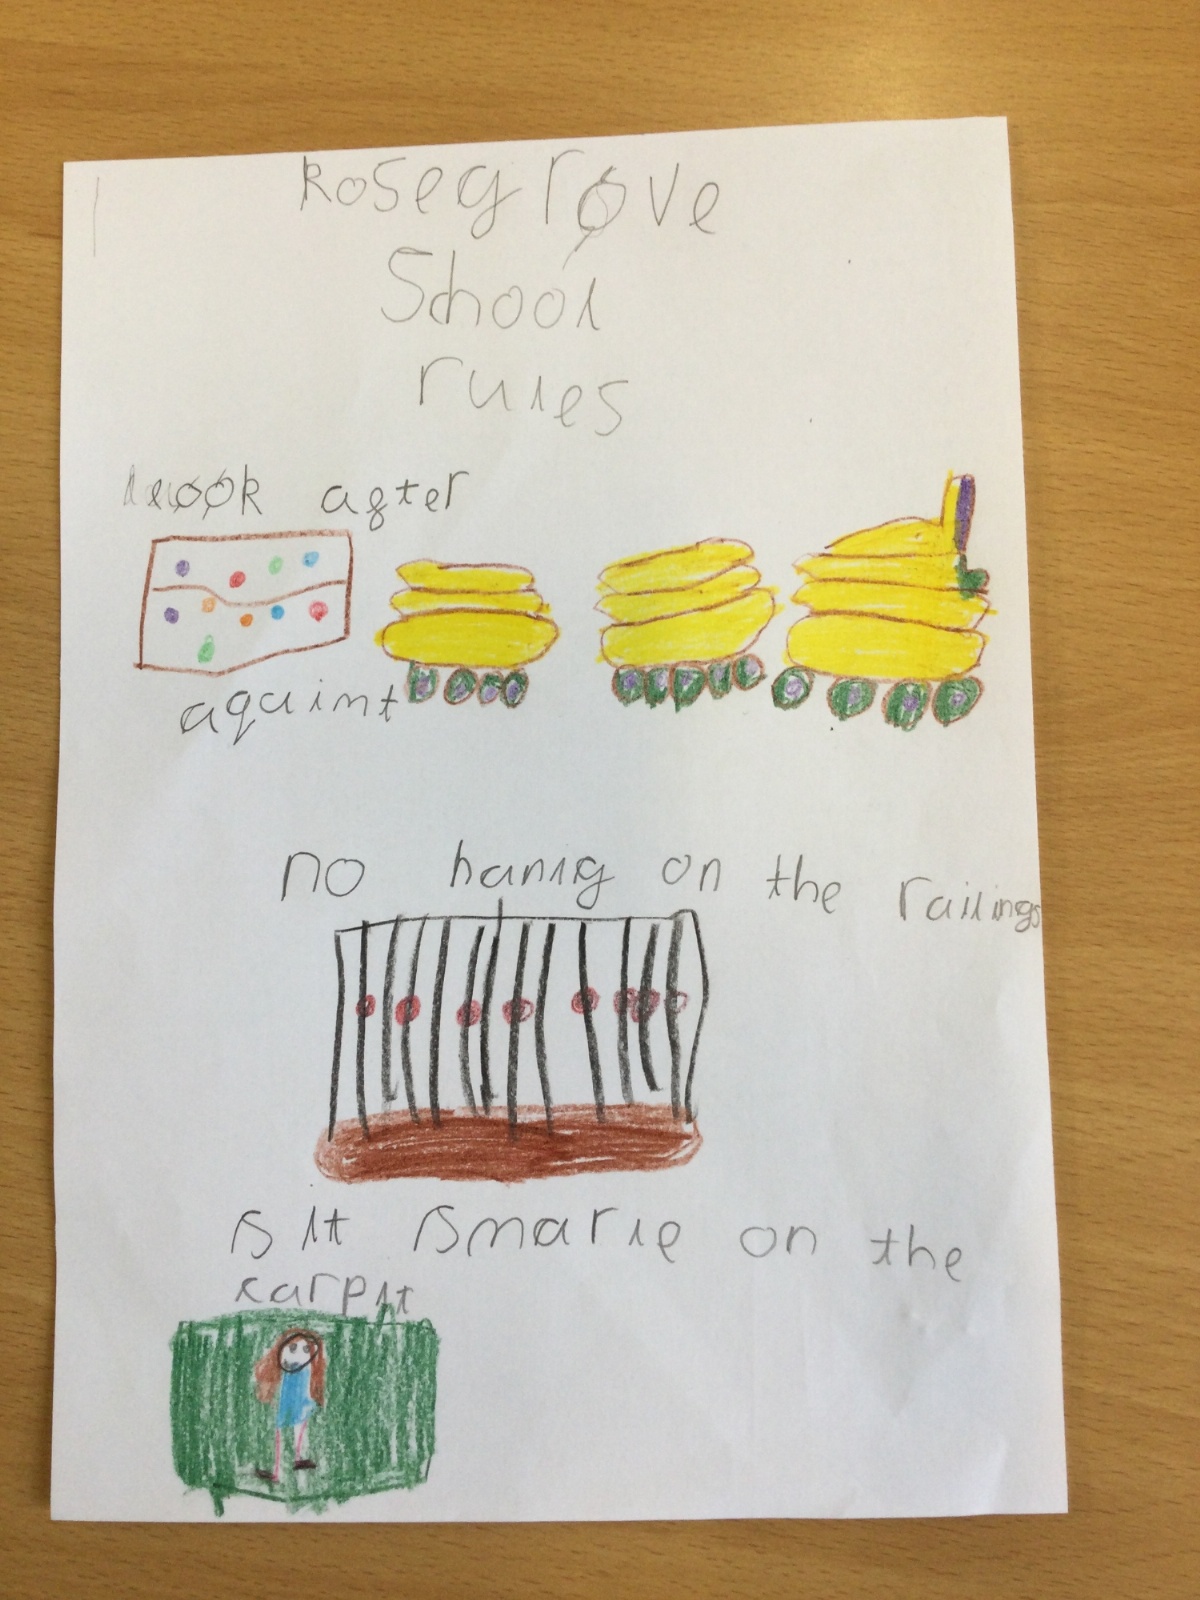 Rosegrove
School
rules
look after
aquaint
no hanig on the railings
sit smarie on the
carpit